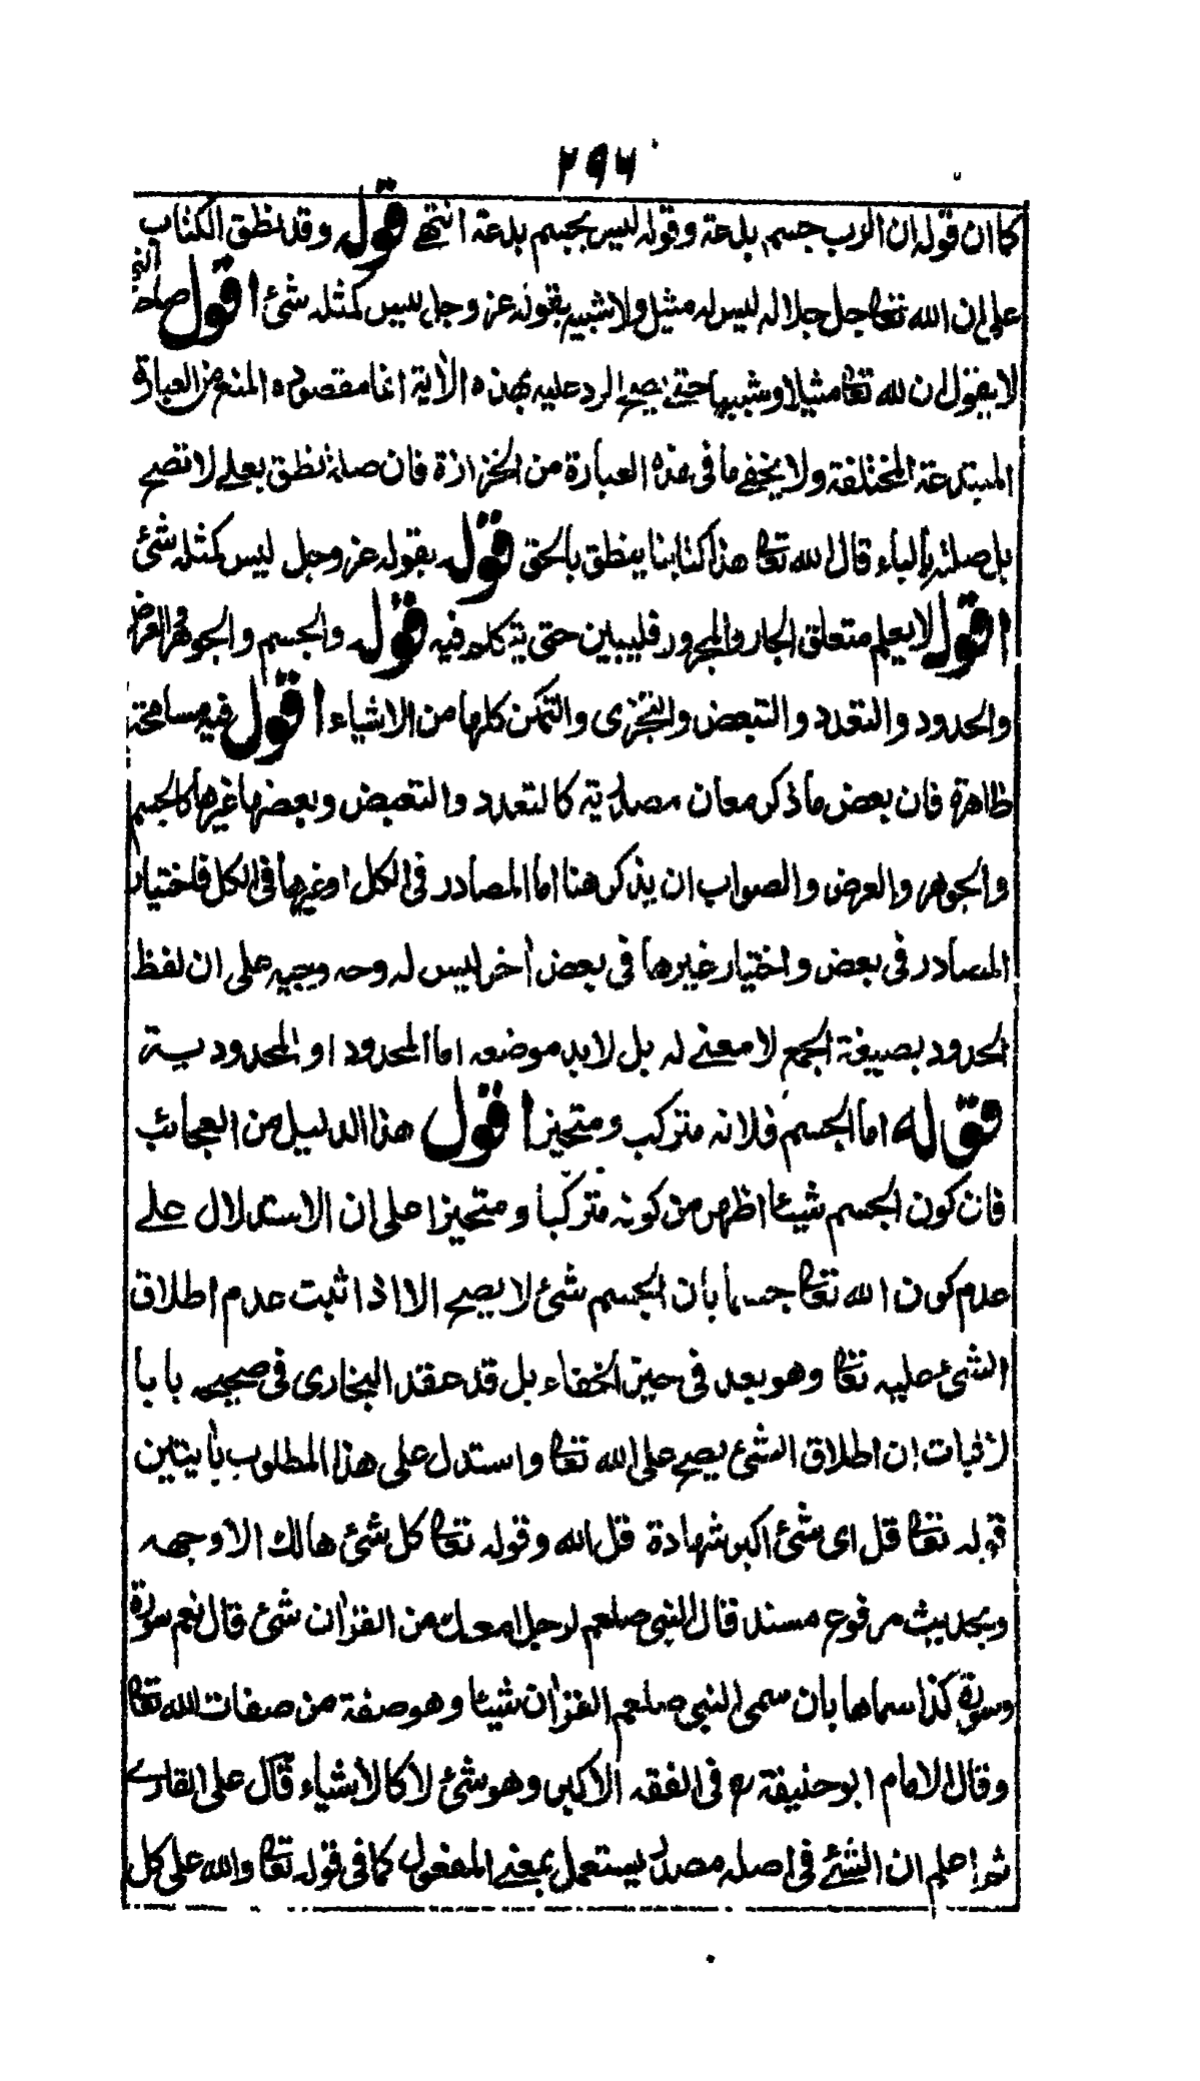 ٢٩٦
كما ان قوله ان الرب جسم بدعة وقوله ليس بجسم بدعة انتهى قوله وقد نطق الكتاب
على ان الله تعالى جل جلاله ليس له مثيل ولا شبيه بقوله عز وجل ليس كمثله شئ اقول صاحب النهج
لا يقول ان لله تعالى مثيلا وشبيها حتى يصح الرد عليه بهذه الأية انما مقصوده المنع من العبارة
المبتدعة المختلفة ولا يخفى ما فى هذه العبارة من الخزازة فان صلة نطق بعلى لا تصح
بل صلته بالباء قال الله تعالى هذا كتابنا ينطق بالحق قوله بقوله عز وجل ليس كمثله شئ
اقول لا يعلم متعلق الجار والمجرور فليبين حتى يتكلم فيه قوله والجسم والجوهر والعرض
والحدود والتعدد والتبعض والتجزى والتمكن كلها من الاشياء اقول فيه مسامحة
ظاهرة فان بعض ما ذكر معان مصدرية كالتعدد والتبعض وبعضها غيرها كالجسم
والجوهر والعرض والصواب ان يذكر هنا اما المصادر فى الكل او غيرها فى الكل فاختيار
المصادر فى بعض واختيار غيرها فى بعض أخر ليس له وجه وجيه على ان لفظ
الحدود بصيغة الجمع لا معنى له بل لا بد موضعه اما المحدود او المحدودية
قوله اما الجسم فلانه متركب ومتحيز اقول هذا الدليل من العجائب
فان كون الجسم شيئا اظهر من كونه متركبا ومتحيزا على ان الاستدلال على
عدم كون الله تعالى جسما بأن الجسم شئ لا يصح الا اذا ثبت عدم اطلاق
الشئ عليه تعالى وهو بعد فى حيز الخفاء بل قد عقد البخارى فى صحيحه بابا
لاثبات ان اطلاق الشئ يصح على الله تعالى واستدل على هذا المطلوب بأيتين
قوله تعالى قل اى شئ اكبر شهادة قل الله وقوله تعالى كل شئ هالك الا وجهه
وبحديث مرفوع مسند قال النبى صلعم لرجل امعك من القرأن شئ قال نعم سورة
وسورة كذا سماها بان سمى النبى صلعم القرأن شيئا وهو صفة من صفات الله تعالى
وقال الامام ابو حنيفة رح فى الفقه الاكبر وهو شئ لا كالأشياء قال على القارے
ثم اعلم ان الشئ فى اصله مصدر يستعمل بمعنى المفعول كما فى قوله تعالى والله على كل